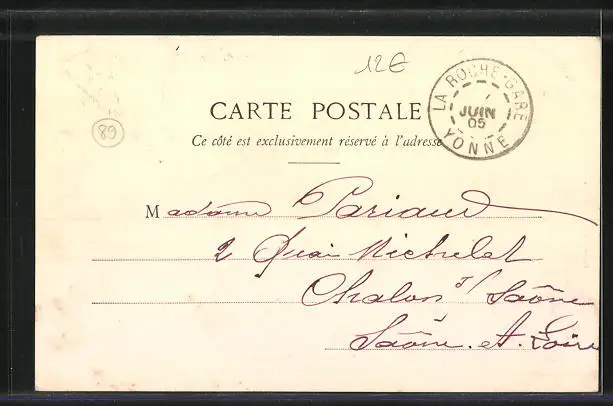 12€
LA ROCHE-GARE
JUIN
05
YONNE
89
CARTE POSTALE
Ce côté est exclusivement réservé à l'adresse
Madame Pariaud
2 Quai Michelet
Chalon s/ Saône
Saône. et. Loire